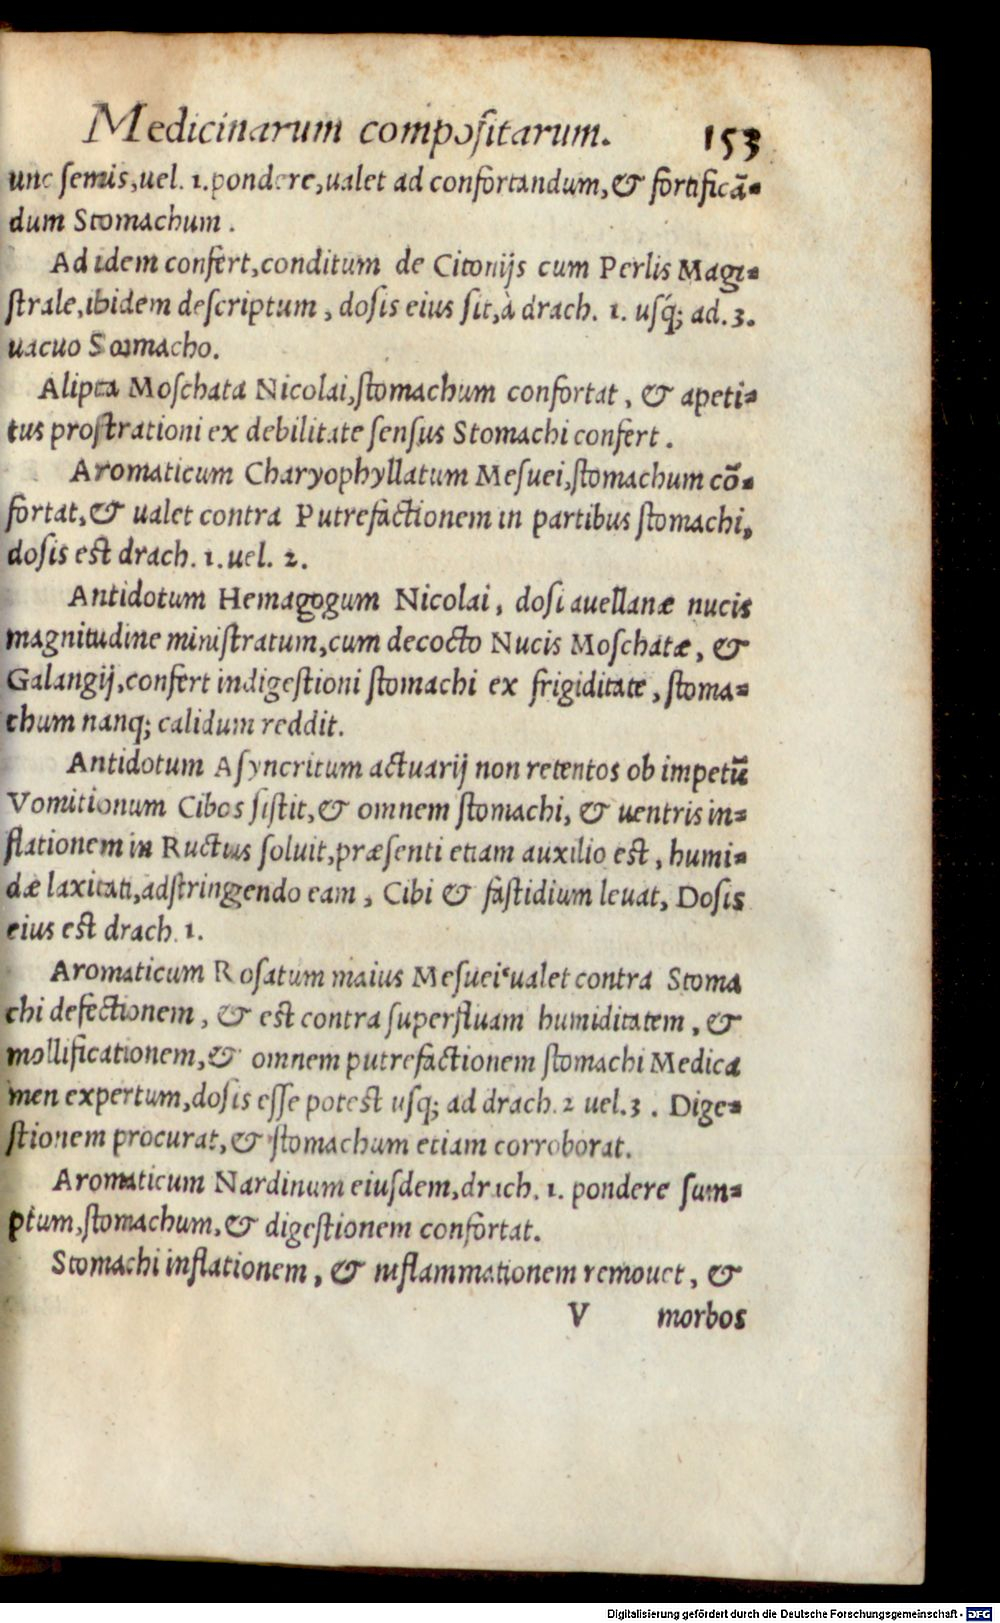 Medicinarum compositarum. 153
unc semis, uel. 1. pondere, ualet ad confortandum, & fortificā-
dum Stomachum.
Ad idem confert, conditum de Citonijs cum Perlis Magi-
strale, ibidem descriptum, dosis eius sit, à drach. 1. usq; ad. 3.
uacuo Stomacho.
Alipta Moschata Nicolai, stomachum confortat, & apeti-
tus prostrationi ex debilitate sensus Stomachi confert.
Aromaticum Charyophyllatum Mesuei, stomachum cō-
fortat, & ualet contra Putrefactionem in partibus stomachi,
dosis est drach. 1. uel. 2.
Antidotum Hemagogum Nicolai, dosi auellanæ nucis
magnitudine ministratum, cum decocto Nucis Moschatæ, &
Galangij, confert indigestioni stomachi ex frigiditate, stoma-
chum nanq; calidum reddit.
Antidotum Asyncritum actuarij non retentos ob impetū
Vomitionum Cibos sistit, & omnem stomachi, & uentris in-
flationem in Ructus soluit, præsenti etiam auxilio est, humi-
dæ laxitati, adstringendo eam, Cibi & fastidium leuat, Dosis
eius est drach. 1.
Aromaticum Rosatum maius Mesuei ualet contra Stoma
chi defectionem, & est contra superfluam humiditatem, &
mollificationem, & omnem putrefactionem stomachi Medica
men expertum, dosis esse potest usq; ad drach. 2 uel. 3. Dige-
stionem procurat, & stomachum etiam corroborat.
Aromaticum Nardinum eiusdem, drach. 1. pondere sum-
ptum, stomachum, & digestionem confortat.
Stomachi inflationem, & inflammationem remouet, &
V morbos
Digitalisierung gefördert durch die Deutsche Forschungsgemeinschaft - DFG